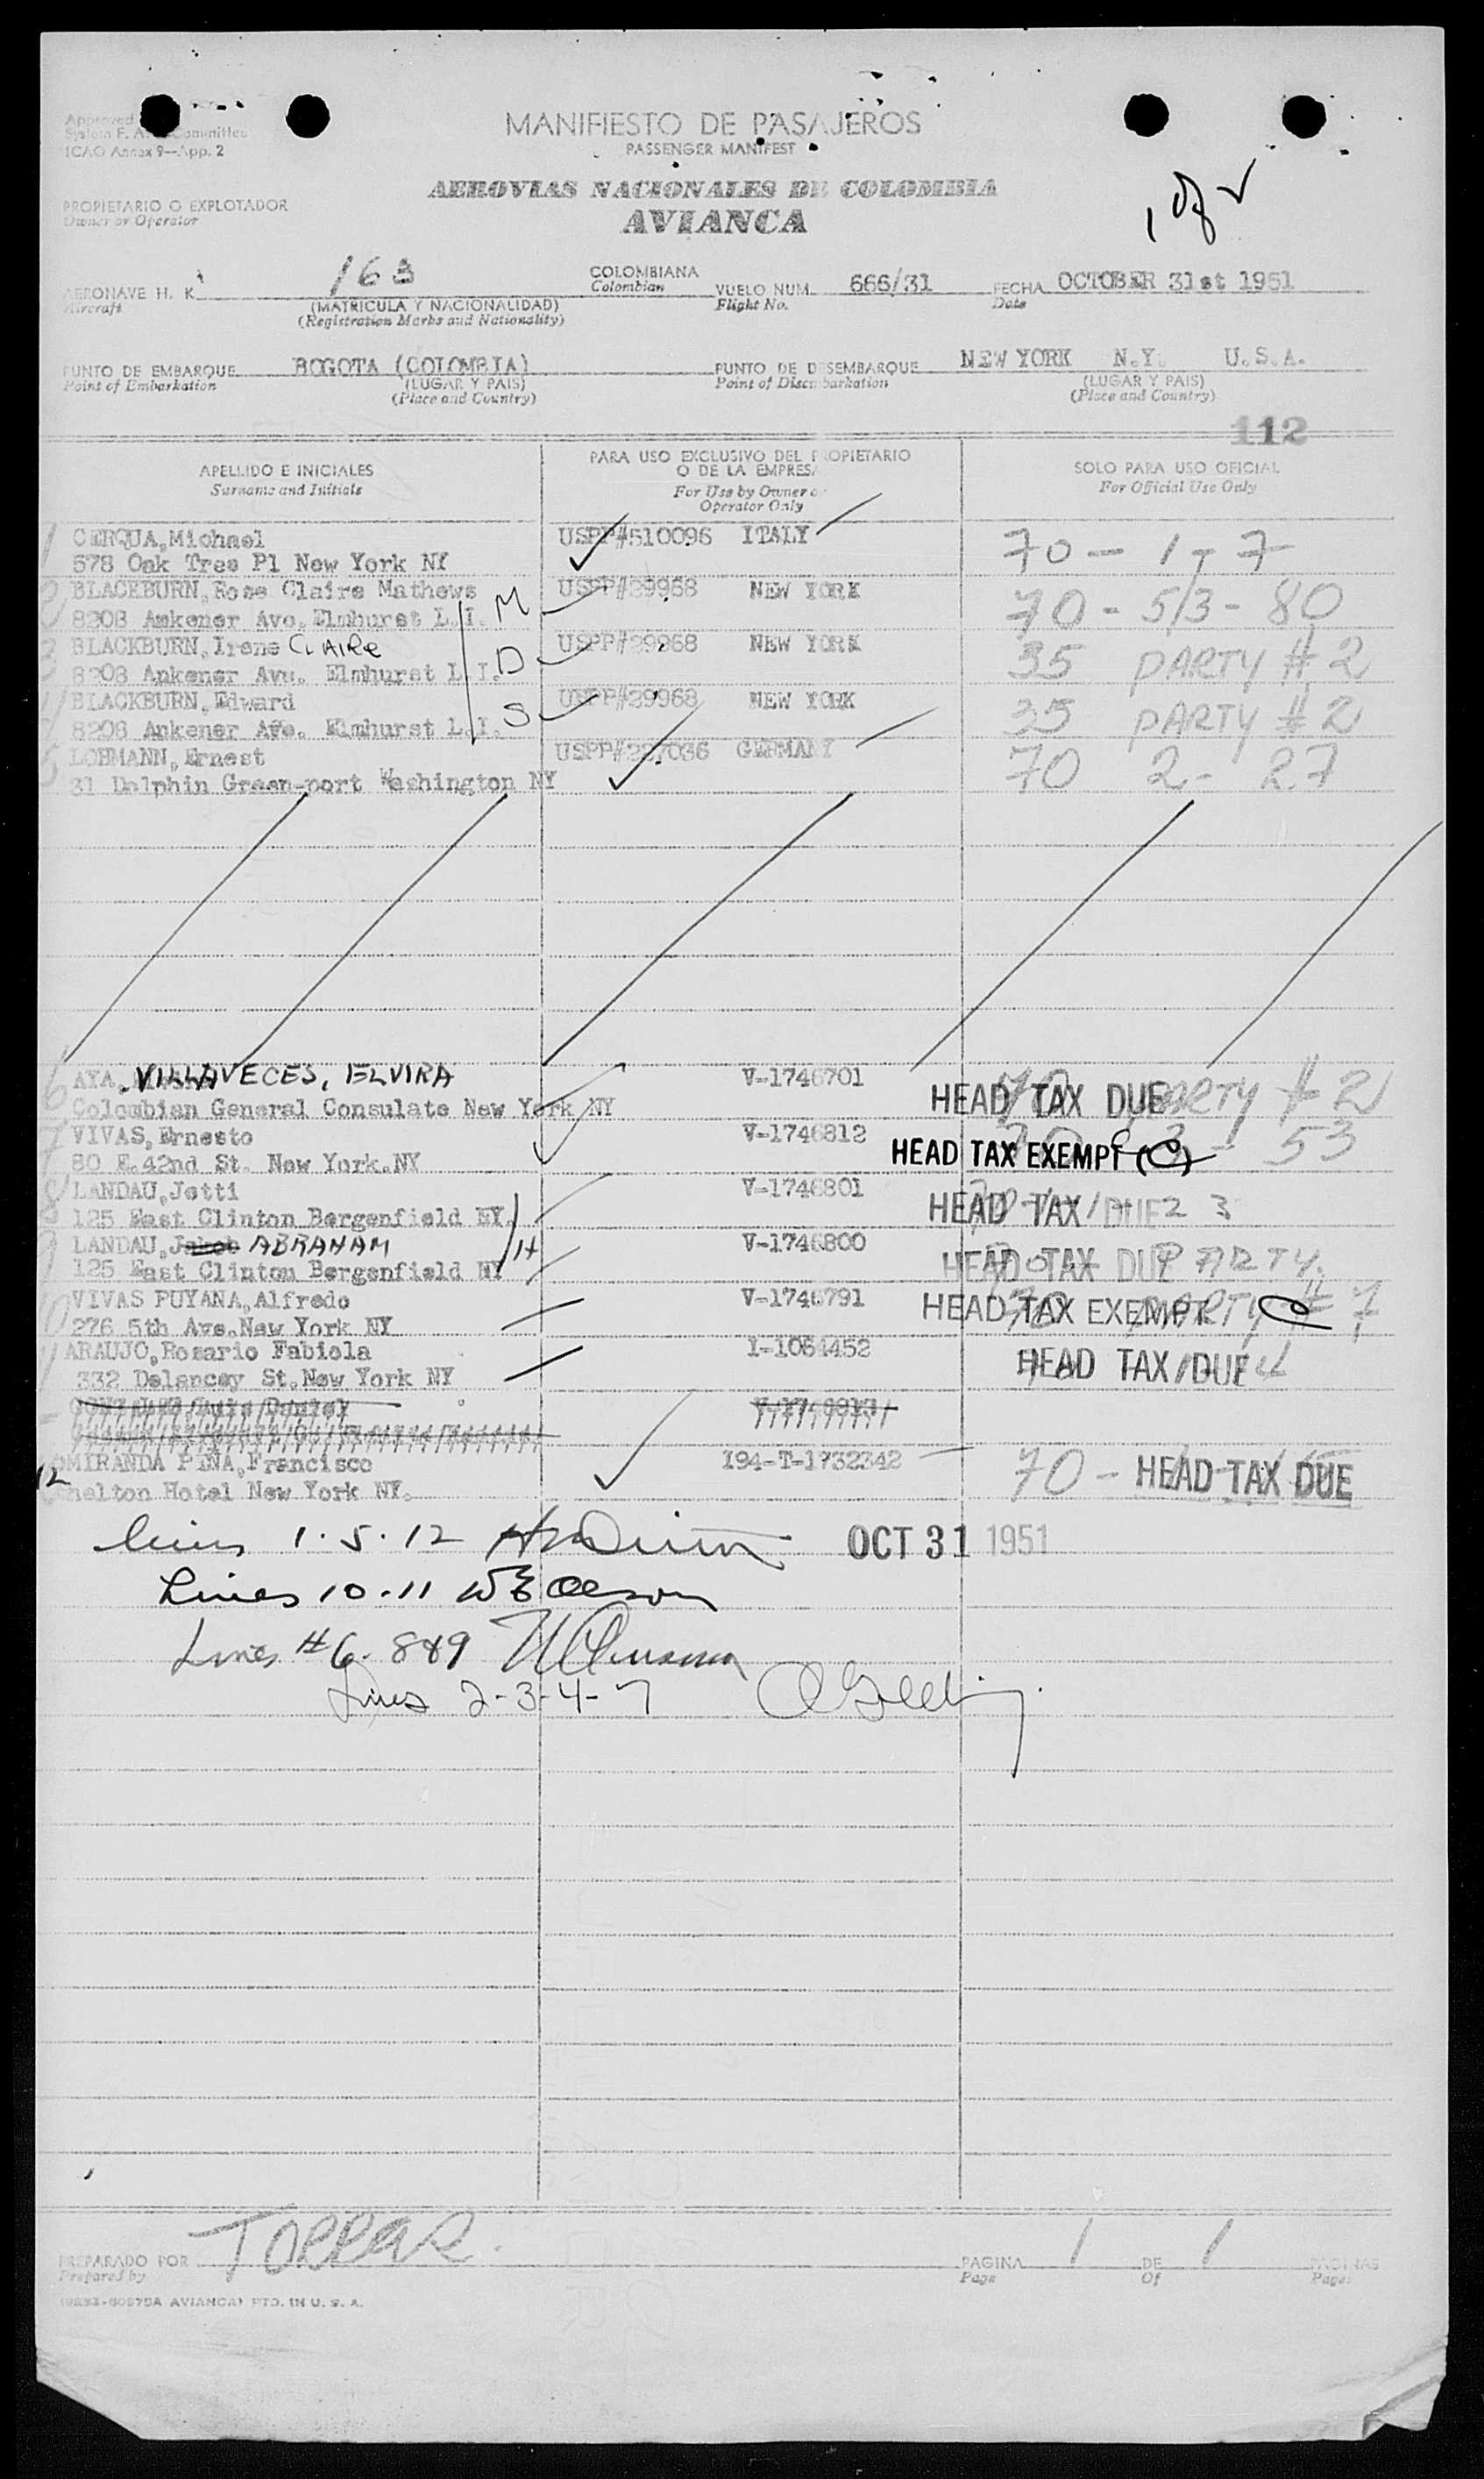 Approved
System F. A. Committee
ICAO Annex 9—App. 2
MANIFIESTO DE PASAJEROS
PASSENGER MANIFEST
AEROVIAS NACIONALES DE COLOMBIA
AVIANCA
PROPIETARIO O EXPLOTADOR
Owner or Operator
AERONAVE H. K. 163 COLOMBIANA VUELO NUM. 666/31 FECHA OCTOBER 31st 1951
Aircraft (MATRICULA Y NACIONALIDAD) Colombian Flight No. Date
(Registration Marks and Nationality)
PUNTO DE EMBARQUE BOGOTA (COLOMBIA) PUNTO DE DESEMBARQUE NEW YORK N.Y. U.S.A.
Point of Embarkation (LUGAR Y PAIS) Point of Disembarkation (LUGAR Y PAIS)
(Place and Country) (Place and Country)
112
APELLIDO E INICIALES PARA USO EXCLUSIVO DEL PROPIETARIO O DE LA EMPRESA SOLO PARA USO OFICIAL
Surname and Initials For Use by Owner or Operator Only For Official Use Only
1 CERQUA, Michael USPP#510096 ITALY 70 - 1 - 7
578 Oak Tree Pl New York NY
2 BLACKBURN, Rose Claire Mathews M USPP#29968 NEW YORK 70 - 5/3 - 80
8208 Ankener Ave. Elmhurst L.I.
3 BLACKBURN, Irene CLAIRe D USPP#29968 NEW YORK 35 PARTY #2
8208 Ankener Ave. Elmhurst L.I.
4 BLACKBURN, Edward S USPP#29968 NEW YORK 35 PARTY #2
8208 Ankener Ave. Elmhurst L.I.
5 LOHMANN, Ernest GERMANY 70 2 - 27
31 Dolphin Green-port Washington NY
6 AYA, VILLAVECES, ELVIRA V-1746701 HEAD TAX DUE PARTY #2
Colombian General Consulate New York NY
7 VIVAS, Ernesto V-1746812 HEAD TAX EXEMPT (C) 53
80 E. 42nd St. New York.NY
8 LANDAU, Jetti V-1746801 HEAD TAX DUE 23
125 East Clinton Bergenfield NY.
9 LANDAU, Jakob ABRAHAM H V-1746800 HEAD TAX DUE PARTY.
125 East Clinton Bergenfield NY
10 VIVAS PUYANA, Alfredo V-1746791 HEAD TAX EXEMPT C PARTY #7
276 5th Ave. New York NY
11 ARAUJO, Rosario Fabiola I-1064452 HEAD TAX DUE 4
332 Delancey St. New York NY
12 MIRANDA PEÑA, Francisco I94-T-1732342 70 - HEAD TAX DUE
Shelton Hotel New York NY.
Lines 1.5.12 OCT 31 1951
Lines 10-11
Lines #6. 8&9
Lines 2-3-4-7
PREPARADO POR PAGINA 1 DE 1 PAGINAS
Prepared by Page Of Pages
AVIANCA) PTD. IN U. S. A.